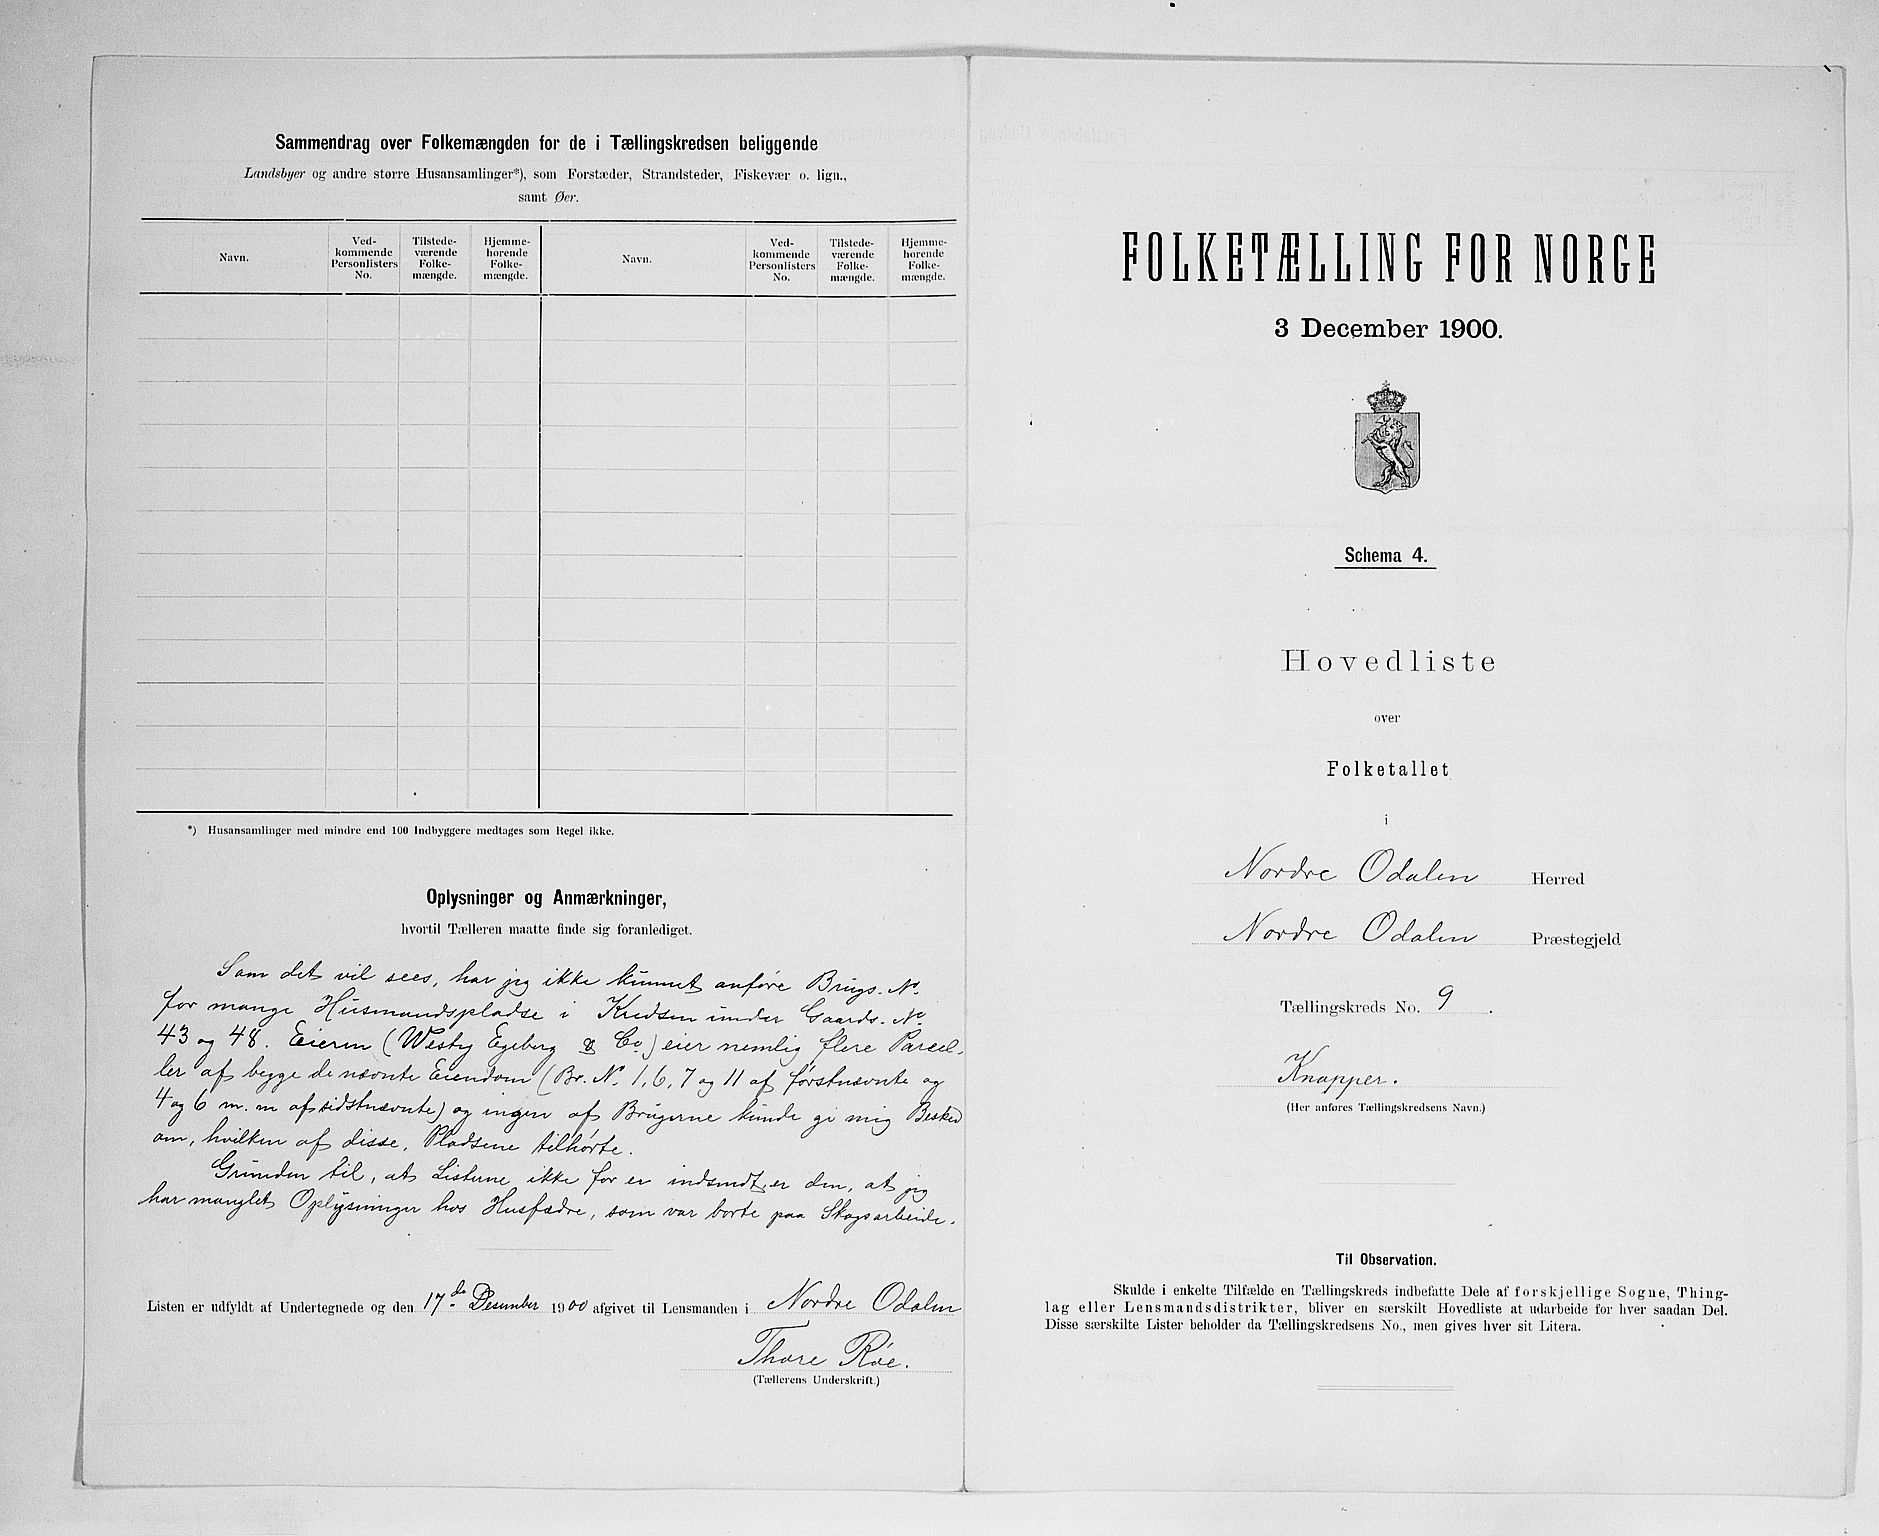 Sammendrag over Folkemængden for de i Tællingskredsen beliggende
Landsbyer og andre større Husansamlinger*), som Forstæder, Strandsteder, Fiskevær o. lign.,
samt Øer.
Navn.
Ved-
kommende
Personlisters
No.
Tilstede-
værende
Folke-
mængde.
Hjemme-
hørende
Folke-
mængde.
Navn.
Ved-
kommende
Personlisters
No.
Tilstede-
værende
Folke-
mængde.
Hjemme-
hørende
Folke-
mængde.
*) Husansamlinger med mindre end 100 Indbyggere medtages som Regel ikke.
Oplysninger og Anmærkninger,
hvortil Tælleren maatte finde sig foranlediget.
Som det vil sees, har jeg ikke kunnet anføre Brugs. No.
for mange Husmandspladse i Kredsen under Gaards. No.
43 og 48. Eieren (Westy Egeberg & Co) eier nemlig flere Parcel-
ler af begge de nævnte Eiendom (Br. No. 1, 6, 7 og 11 af førstnævnte og
4 og 6 m. m af sidstnævnte) og ingen af Brugerne kunde gi mig Besked
om, hvilken af disse, Pladsene tilhørte.
Grunden til, at Listerne ikke før er indsendt, er den, at jeg
har manglet Oplysninger hos Husfædre, som var borte paa Skogsarbeide.
Listen er udfyldt af Undertegnede og den 17de Desember 1900 afgivet til Lensmanden i Nordre Odalen
Thore Røe.
(Tællerens Underskrift.)
FOLKETÆLLING FOR NORGE
3 December 1900.
Schema 4.
Hovedliste
over
Folketallet
i
Nordre Odalen Herred
Nordre Odalen Præstegjeld
Tællingskreds No. 9.
Knapper.
(Her anføres Tællingskredsens Navn.)
Til Observation.
Skulde i enkelte Tilfælde en Tællingskreds indbefatte Dele af forskjellige Sogne, Thing-
lag eller Lensmandsdistrikter, bliver en særskilt Hovedliste at udarbeide for hver saadan Del.
Disse særskilte Lister beholder da Tællingskredsens No., men gives hver sit Litera.